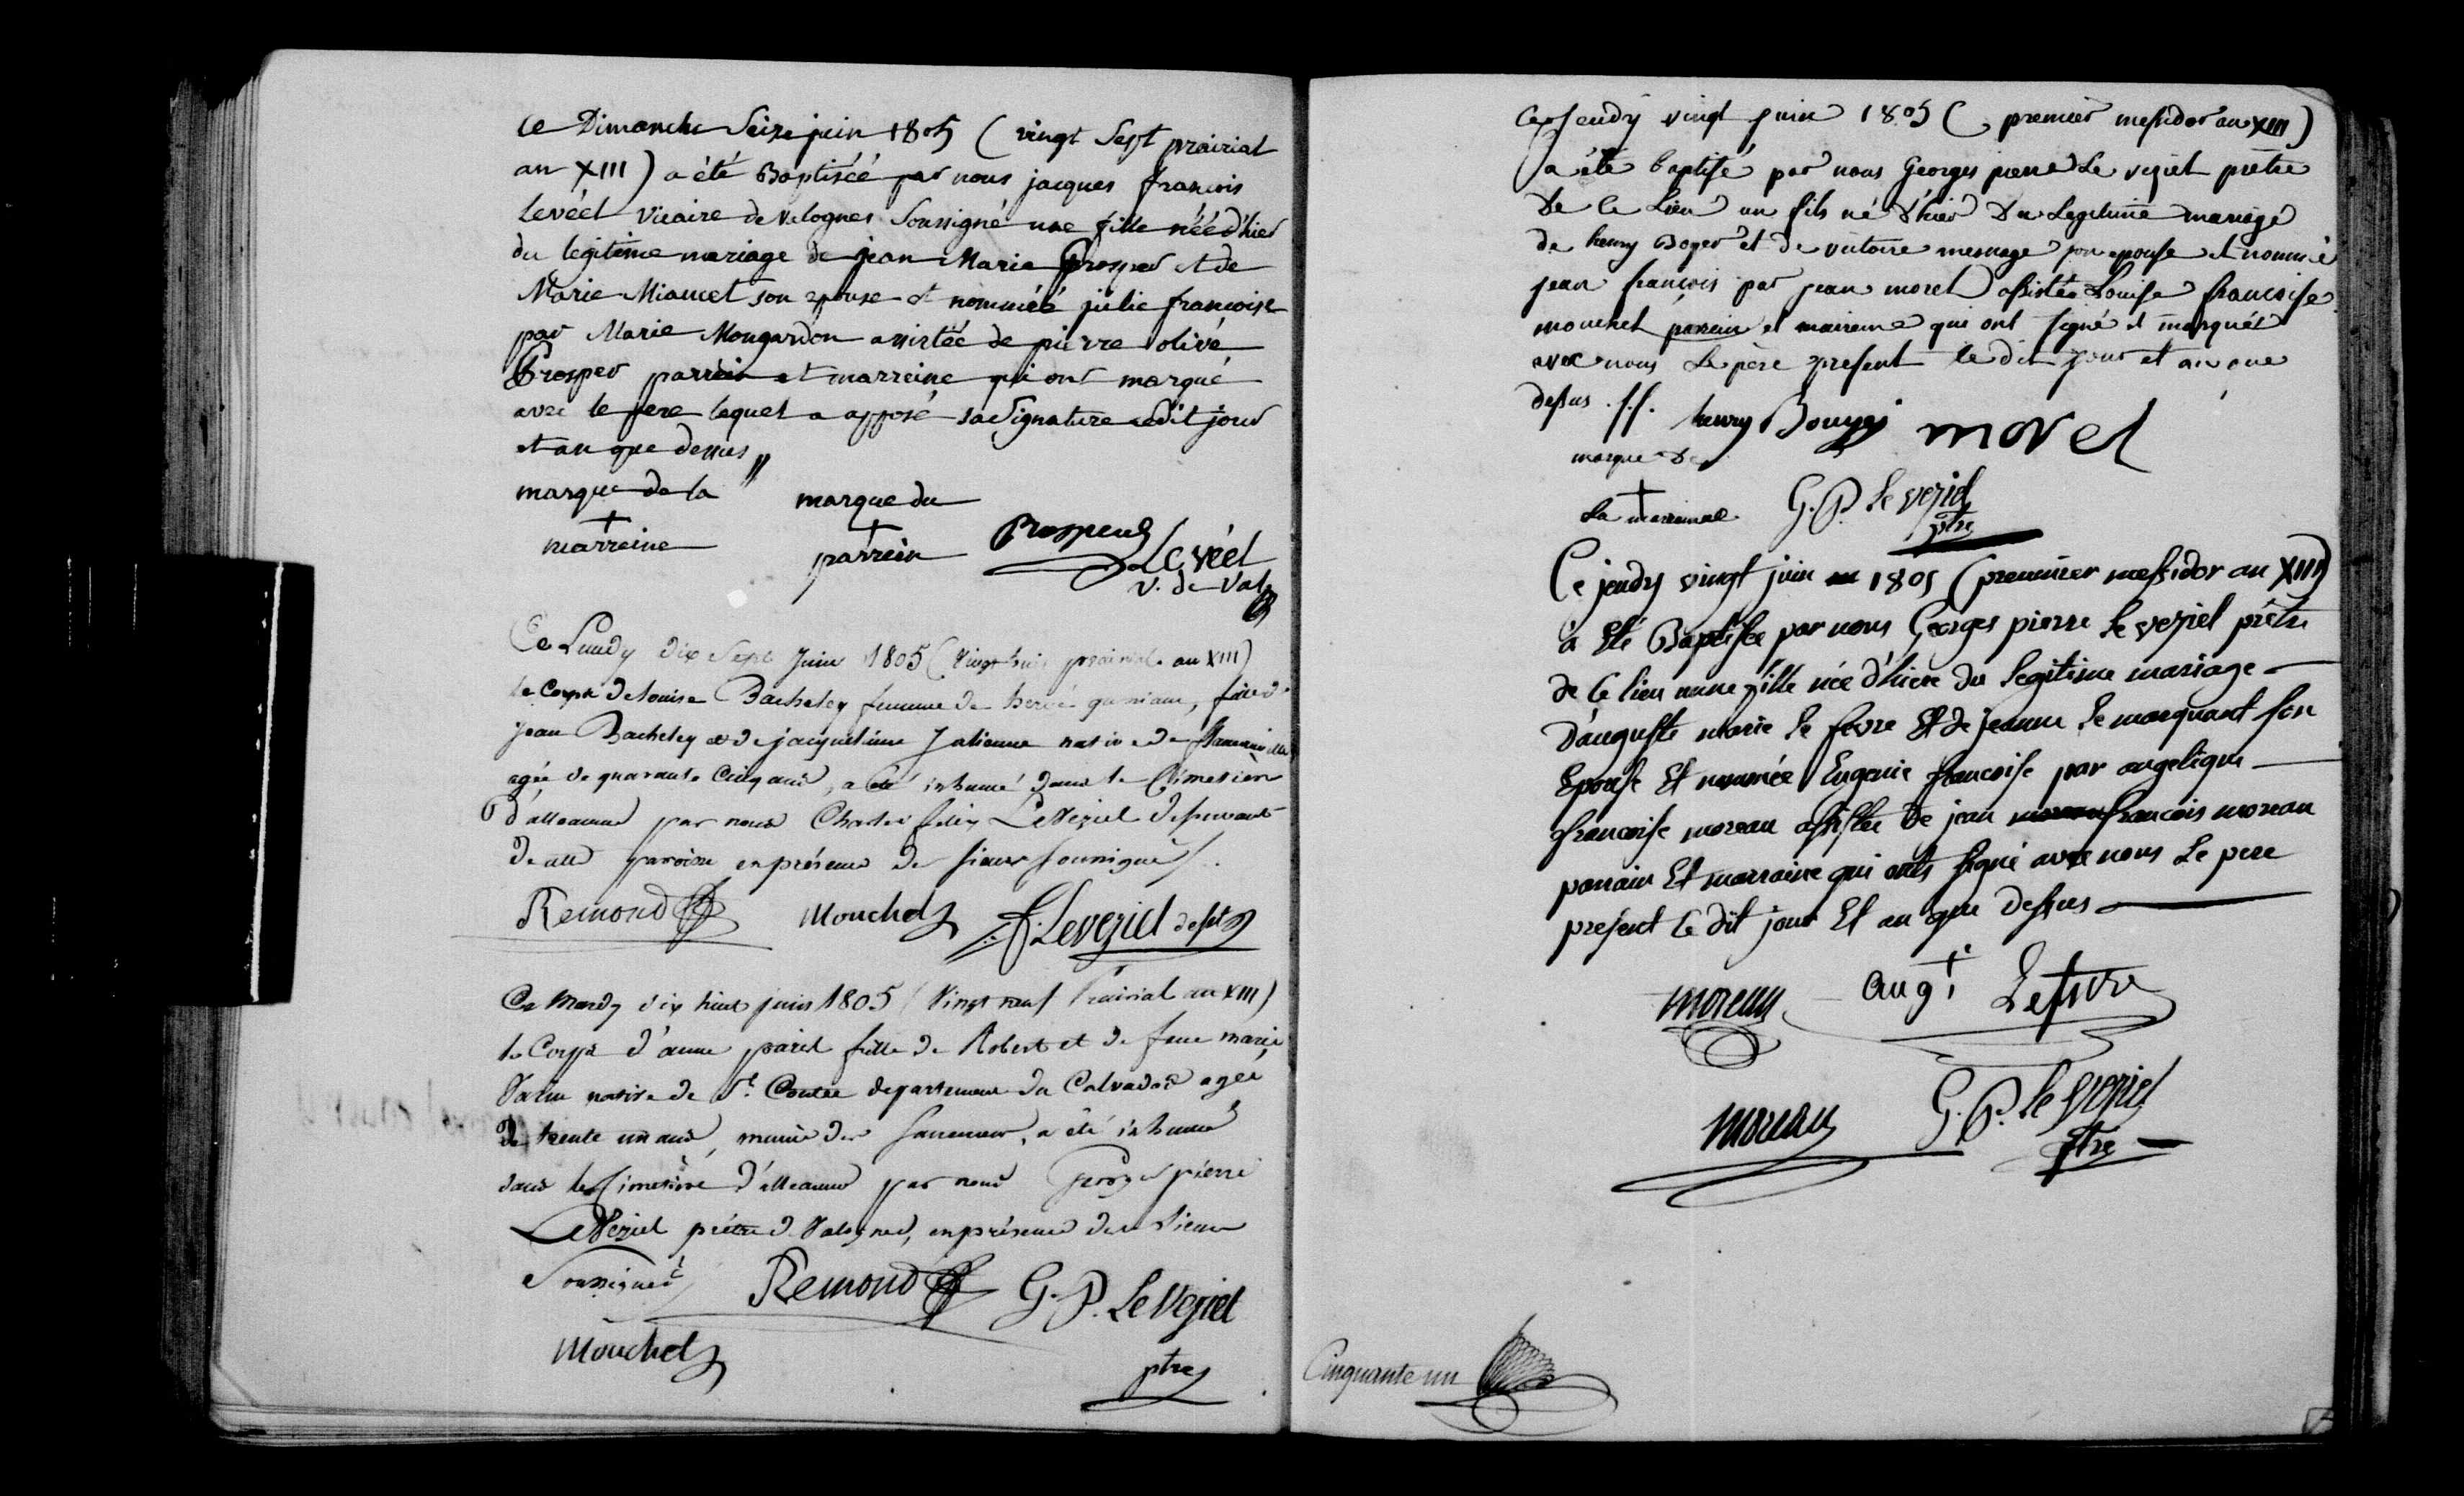 Ce Dimanche Seize juin 1805 (vingt Sept prairial
an XIII) a été Baptiséé par nous jacques francois
levéel Vicaire de valognes Soussigné une fille néé d'hier
du legitime mariage de jean Marie Prosper et de
Marie Miaucet son epouse et nomméé julie francoise
par Marie Mongardon assistéé de pierre olivé
Prosper parrein et marreine qui ont marqué
avec le pere lequel a apposé sa Signature ledit jour
et an que dessus //
marque de la marque du
+ +
marreine parrein Prosper Levéel
v. de Val
Ce Lundy dix Sept Juin 1805 (Vingt huit prairial an XIII)
le Corps de louise Bacheley femme de hervé fille de
jean Bacheley et de jacqueline Julienne native de
agée de quarante Cinq ans, a été inhumé dans le Cimetière
d'alleaume par nous Charles felix LeVeziel desservant
de cette paroisse en présence des sieurs soussignés
Remond Mouchel f. Leveziel desst
Ce Mardy dix huit juin 1805 (Vingt neuf Prairial an XIII)
le Corps d'anne parel fille de Robert et de feue marie
native de St. Contee departement du Calvados agée
de trente un ans, munie des sacremens, a été inhumé
dans le Cimetière d'alleaume par nous Georges pierre
LeVeziel prêtre de Valognes, en présence des sieurs
Soussignés Remond G. P. LeVeziel
Mouchel ptre
Ce jeudy vingt juin 1805 (premier messidor an XIII)
a été baptisé par nous Georges pierre Le veziel prêtre
de ce Lieu un fils né d'hier du Legitime mariage
de henry Boyer et de victoire mesnage son epouse et nommé
jean françois par jean morel assistée Louise françoise
mouchel parein et maireine qui ont signé et marqués
avec nous Le père present le dit jour et an que
dessus .//. henry Bouyer morel
marque de
+
La marreinne G. P. Le veziel
ptre
Ce jeudy vingt juin 1805 (premier messidor an XIII)
à Eté Baptisée par nous Georges pierre le veziel prêtre
de Ce lieu une fille née d'hiere du legitime mariage
D'auguste marie le fevre Et de jeanne le marquant son
Epouse Et nommée Eugenie francoise par angelique
francoise moreau assistée de jean francois moreau
parrain Et marraine qui onts signé avec nous Le pere
present le dit jour Et an que dessus
moreau augte Lefevre
moreau G. P. le Veziel
ptre
Cinquante un